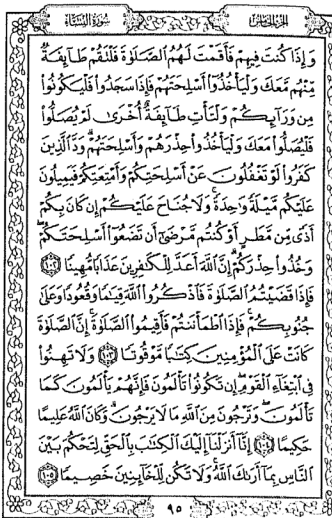 الجزء الخامس
سورة النساء
وَإِذَا كُنتَ فِيهِمْ فَأَقَمْتَ لَهُمُ ٱلصَّلَوٰةَ فَلْتَقُمْ طَآئِفَةٌ
مِّنْهُم مَّعَكَ وَلْيَأْخُذُوٓا۟ أَسْلِحَتَهُمْ فَإِذَا سَجَدُوا۟ فَلْيَكُونُوا۟
مِن وَرَآئِكُمْ وَلْتَأْتِ طَآئِفَةٌ أُخْرَىٰ لَمْ يُصَلُّوا۟
فَلْيُصَلُّوا۟ مَعَكَ وَلْيَأْخُذُوا۟ حِذْرَهُمْ وَأَسْلِحَتَهُمْ وَدَّ ٱلَّذِينَ
كَفَرُوا۟ لَوْ تَغْفُلُونَ عَنْ أَسْلِحَتِكُمْ وَأَمْتِعَتِكُمْ فَيَمِيلُونَ
عَلَيْكُم مَّيْلَةً وَٰحِدَةً وَلَا جُنَاحَ عَلَيْكُمْ إِن كَانَ بِكُمْ
أَذًى مِّن مَّطَرٍ أَوْ كُنتُم مَّرْضَىٰٓ أَن تَضَعُوٓا۟ أَسْلِحَتَكُمْ
وَخُذُوا۟ حِذْرَكُمْ إِنَّ ٱللَّهَ أَعَدَّ لِلْكَٰفِرِينَ عَذَابًا مُّهِينًا ١٠٢
فَإِذَا قَضَيْتُمُ ٱلصَّلَوٰةَ فَٱذْكُرُوا۟ ٱللَّهَ قِيَٰمًا وَقُعُودًا وَعَلَىٰ
جُنُوبِكُمْ فَإِذَا ٱطْمَأْنَنتُمْ فَأَقِيمُوا۟ ٱلصَّلَوٰةَ إِنَّ ٱلصَّلَوٰةَ
كَانَتْ عَلَى ٱلْمُؤْمِنِينَ كِتَٰبًا مَّوْقُوتًا ١٠٣ وَلَا تَهِنُوا۟
فِى ٱبْتِغَآءِ ٱلْقَوْمِ إِن تَكُونُوا۟ تَأْلَمُونَ فَإِنَّهُمْ يَأْلَمُونَ كَمَا
تَأْلَمُونَ وَتَرْجُونَ مِنَ ٱللَّهِ مَا لَا يَرْجُونَ وَكَانَ ٱللَّهُ عَلِيمًا
حَكِيمًا ١٠٤ إِنَّآ أَنزَلْنَآ إِلَيْكَ ٱلْكِتَٰبَ بِٱلْحَقِّ لِتَحْكُمَ بَيْنَ
ٱلنَّاسِ بِمَآ أَرَىٰكَ ٱللَّهُ وَلَا تَكُن لِّلْخَآئِنِينَ خَصِيمًا ١٠٥
٩٥